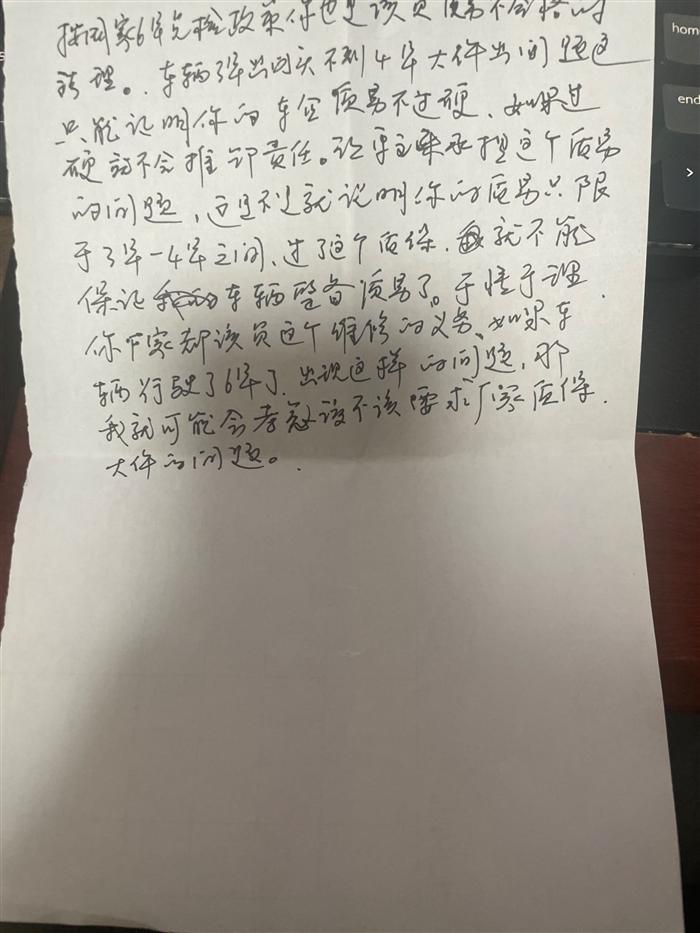 按国家6年免检政策你也是该负质易不合格的
车辆3年出内头不到4年大件出问题这
只能证明你的车企质易不过硬、如果过
硬就不会推卸责任。让车主来承担这个质易
的问题，这是不是就说明你的质易只限
于3年-4年之间、过了这个质保.就不能
保证车辆整备质易了。于情于理.
你厂家都该负这个维修的义务、如果车
辆行驶了6年了.出现这样的问题，那
我就可能会考虑该不该要求厂家质保.
大件的问题。.
home
end
>